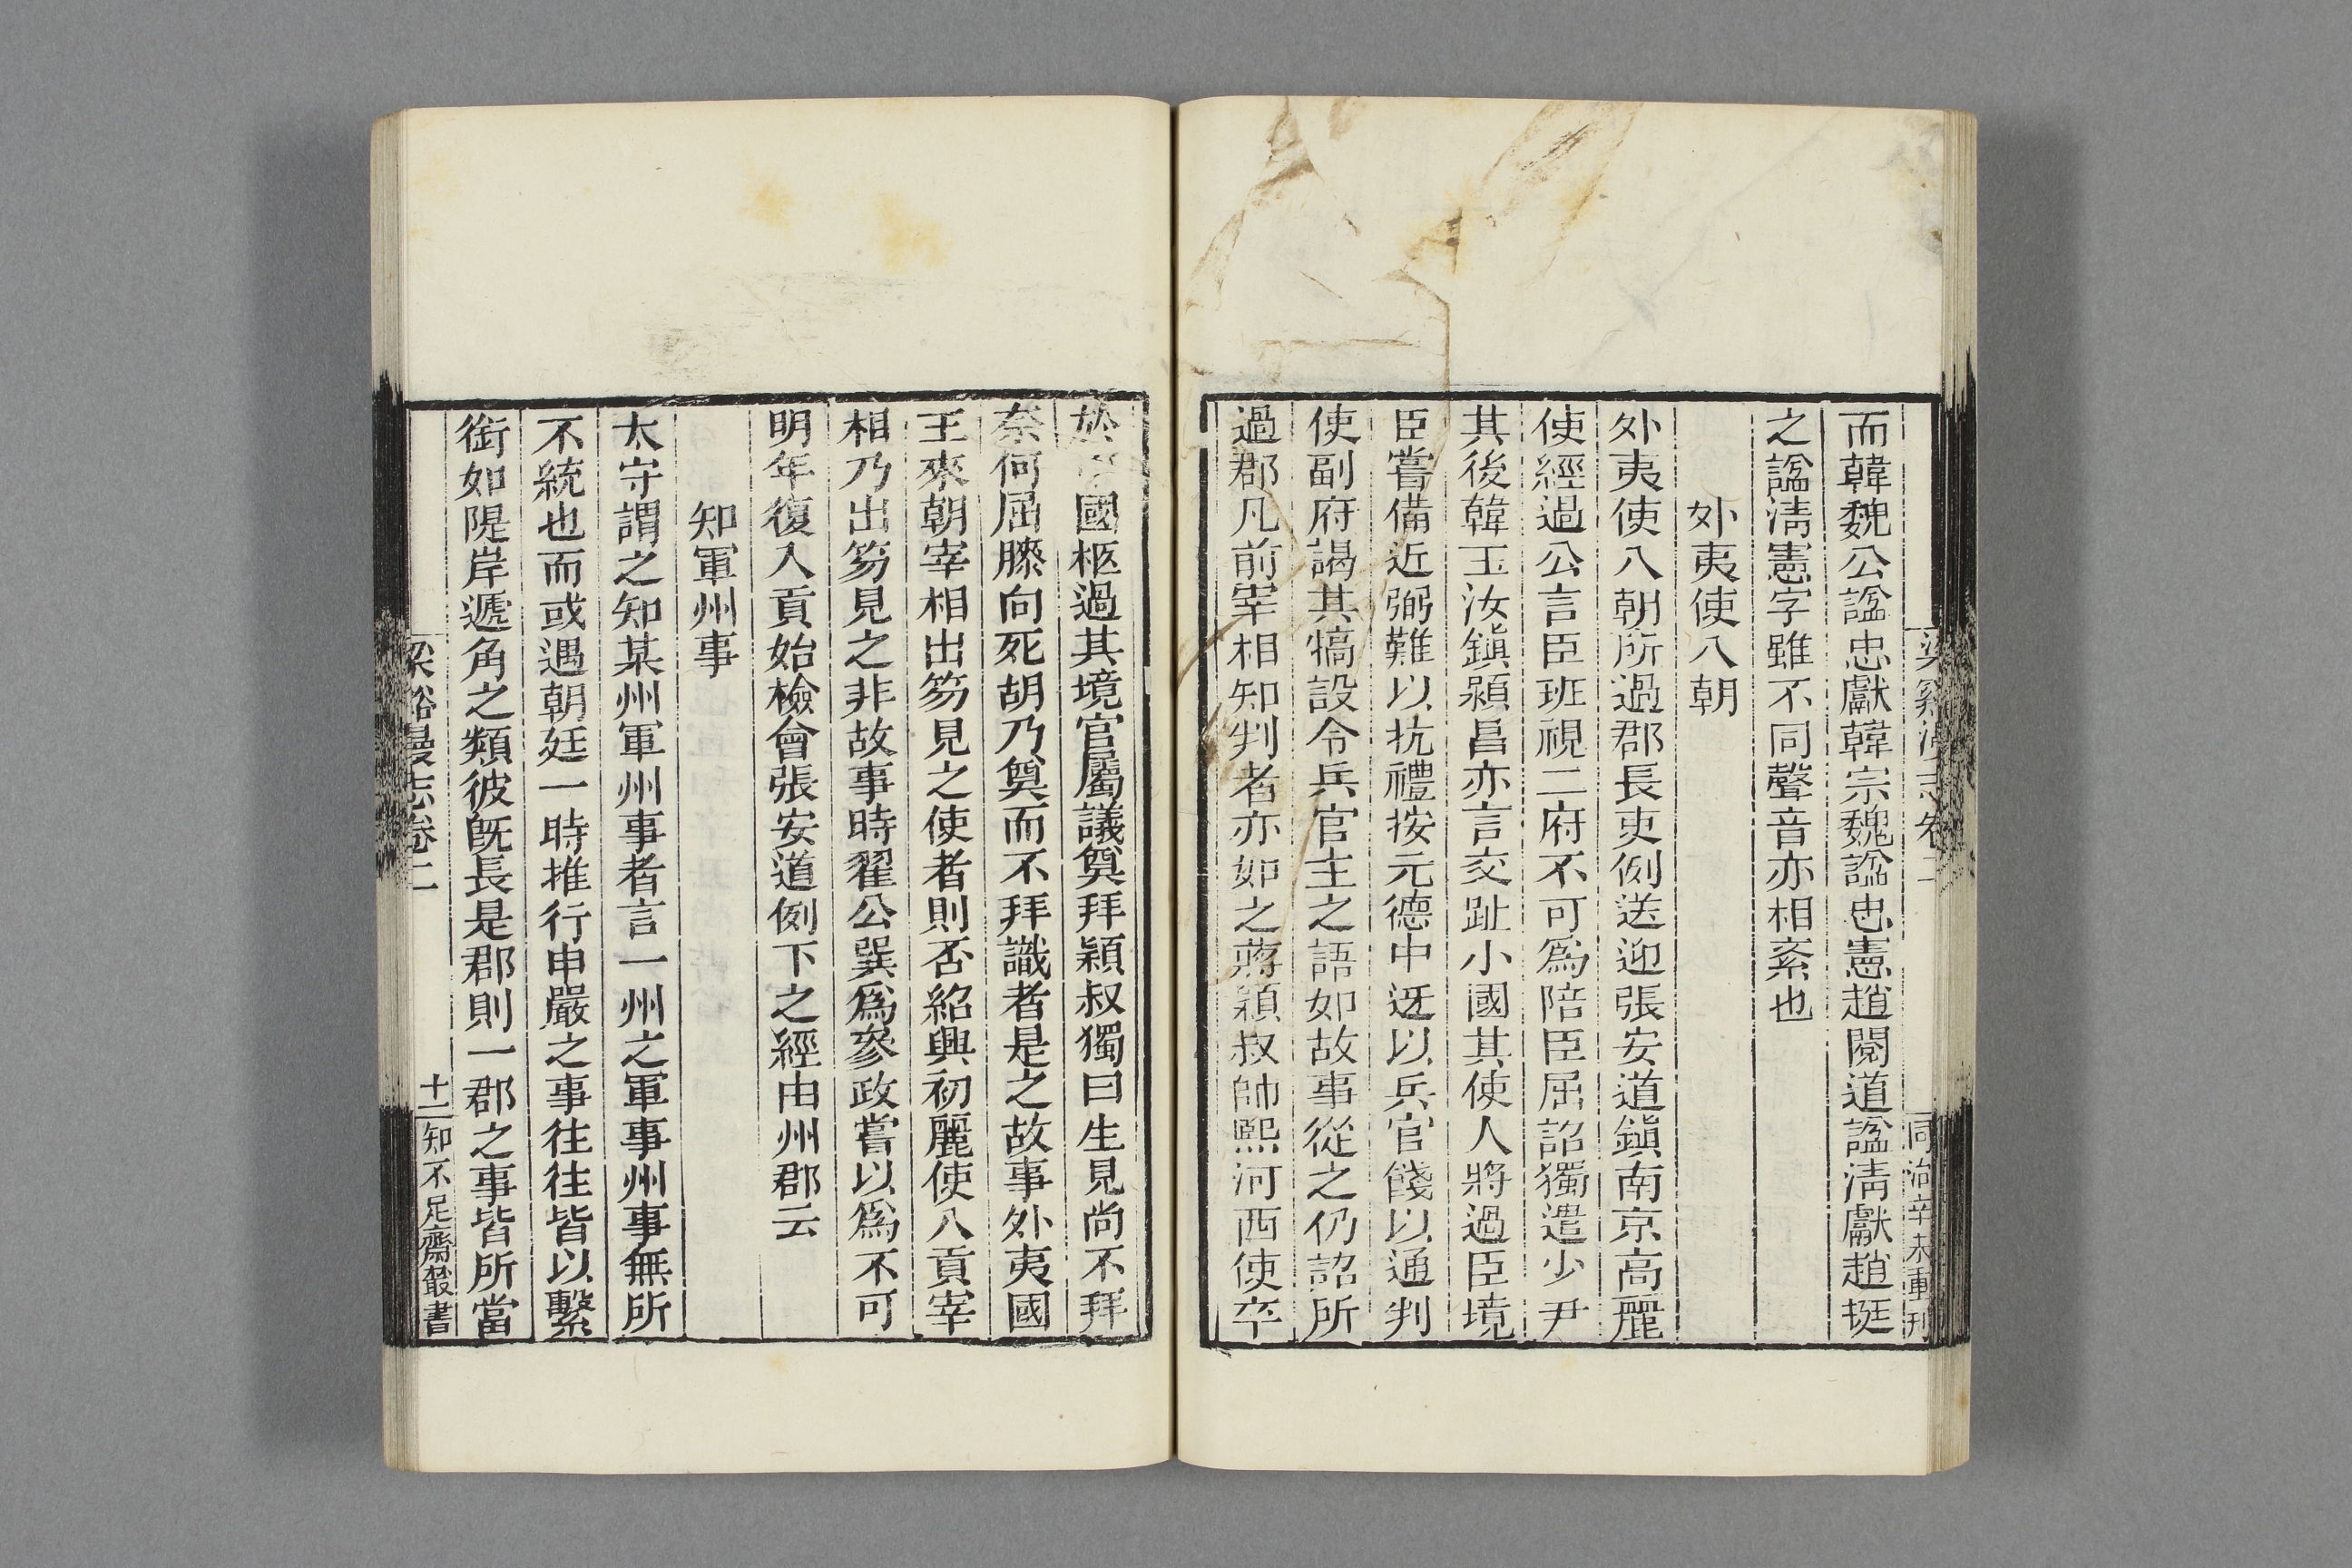 梁谿漫志卷二
同治辛未重刊
而韓魏公諡忠獻韓宗魏諡忠憲趙閱道諡淸獻趙挺
之諡淸憲字雖不同聲音亦相紊也
外夷使入朝
外夷使入朝所過郡長吏例送迎張安道鎭南京高麗
使經過公言臣班視二府不可爲陪臣屈詔獨遣少尹
其後韓玉汝鎭潁昌亦言交趾小國其使人將過臣境
臣嘗備近弼難以抗禮按元德中迓以兵官餞以通判
使副府謁其犒設令兵官主之語如故事從之仍詔所
過郡凡前宰相知判者亦如之蔣潁叔帥熙河西使卒
於國柩過其境官屬議奠拜穎叔獨曰生見尚不拜
奈何屈膝向死胡乃奠而不拜識者是之故事外夷國
王來朝宰相出笏見之使者則否紹興初麗使入貢宰
相乃出笏見之非故事時翟公巽爲參政嘗以爲不可
明年復入貢始檢會張安道例下之經由州郡云
知軍州事
太守謂之知某州軍州事者言一州之軍事州事無所
不統也而或遇朝廷一時推行申嚴之事往往皆以繫
銜如隄岸遞角之類彼旣長是郡則一郡之事皆所當
梁谿漫志卷二
十二
知不足齋叢書